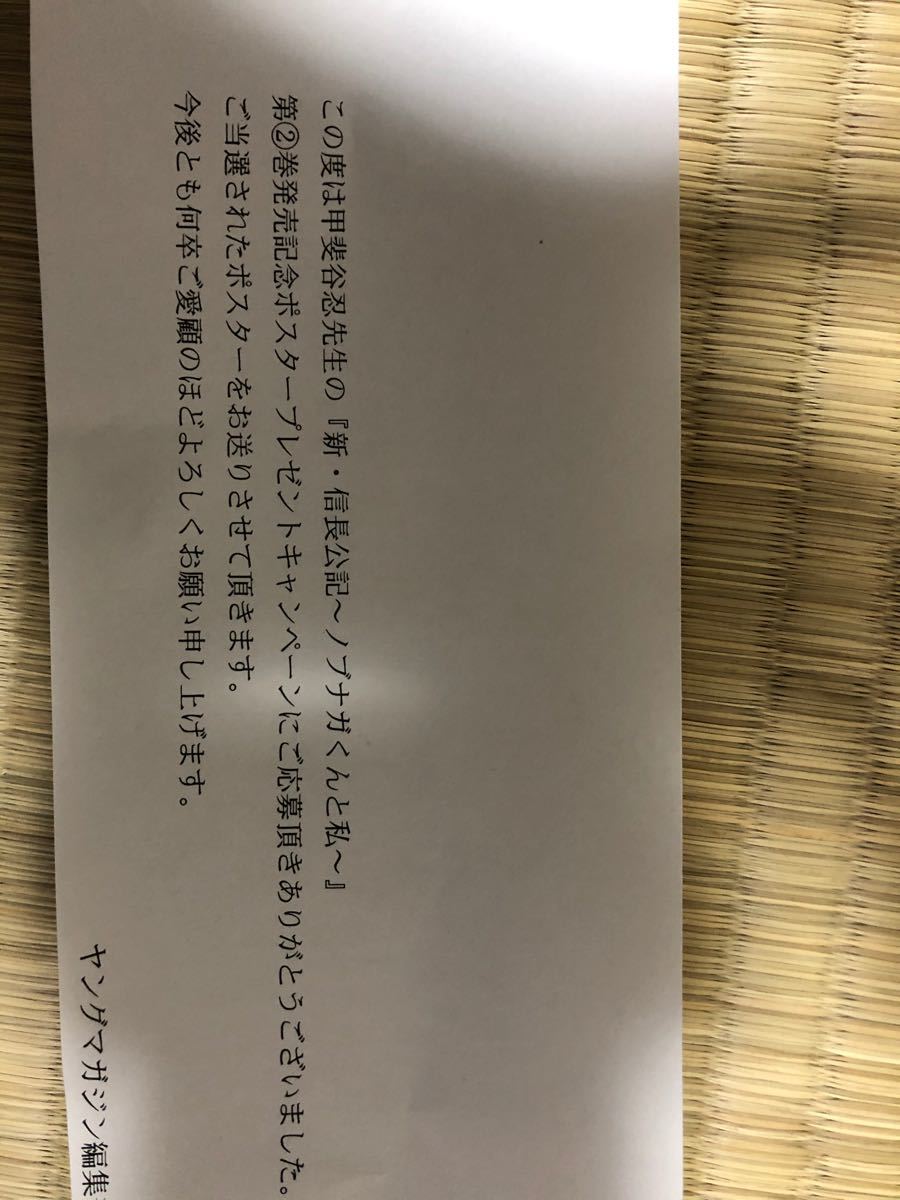 この度は甲斐谷忍先生の『新・信長公記～ノブナガくんと私～』
第②巻発売記念ポスタープレゼントキャンペーンにご応募頂きありがとうございました。
ご当選されたポスターをお送りさせて頂きます。
今後とも何卒ご愛顧のほどよろしくお願い申し上げます。
ヤングマガジン編集